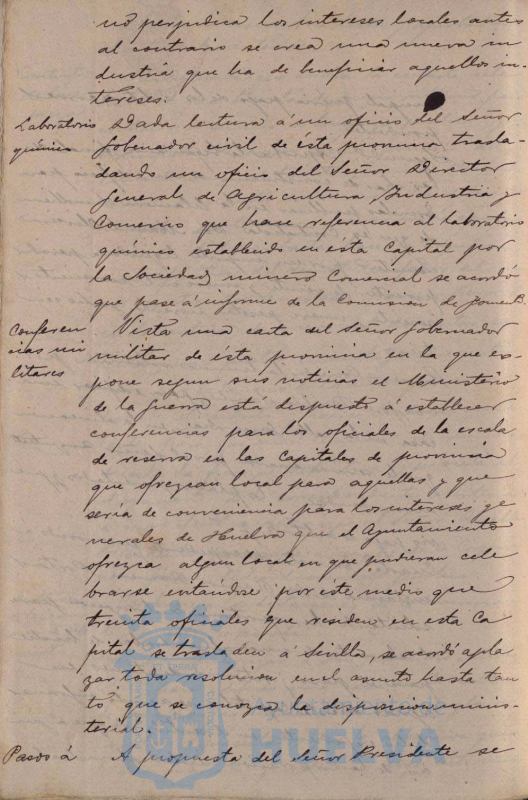 no perjudica los intereses locales antes
al contrario se crea una nueva in
dustria que ha de beneficiar aquellos in-
tereses.
Laboratorio
químico
Dada lectura á un oficio del Señor
Gobernador civil de ésta provincia trasla-
dando un oficio del Señor Director
General de Agricultura, Industria y
Comercio que hace referencia al laboratorio
químico establecido en ésta Capital por
la Sociedad minero Comercial se acordó
que pase á informe de la Comision de Foment.
Conferen
cias mi
litares
Vista una carta del Señor Gobernador
militar de ésta provincia en la que ex-
pone segun sus noticias el Ministerio
de la Guerra está dispuesto á establecer
conferencias para los oficiales de la escala
de reserva en las Capitales de provincia
que ofrezcan local para aquellas y que
sería de conveniencia para los intereses ge
nerales de Huelva que el Ayuntamiento
ofrezca algun local en que pudieran cele
brarse evitándose por éste medio que
treinta oficiales que residen en esta Ca
pital se trasladen á Sevilla, se acordó apla
zar toda resolucion en el asunto hasta tan
to que se conozca la disposicion minis-
terial.
Pasos á
A propuesta del Señor Presidente se
HUELVA